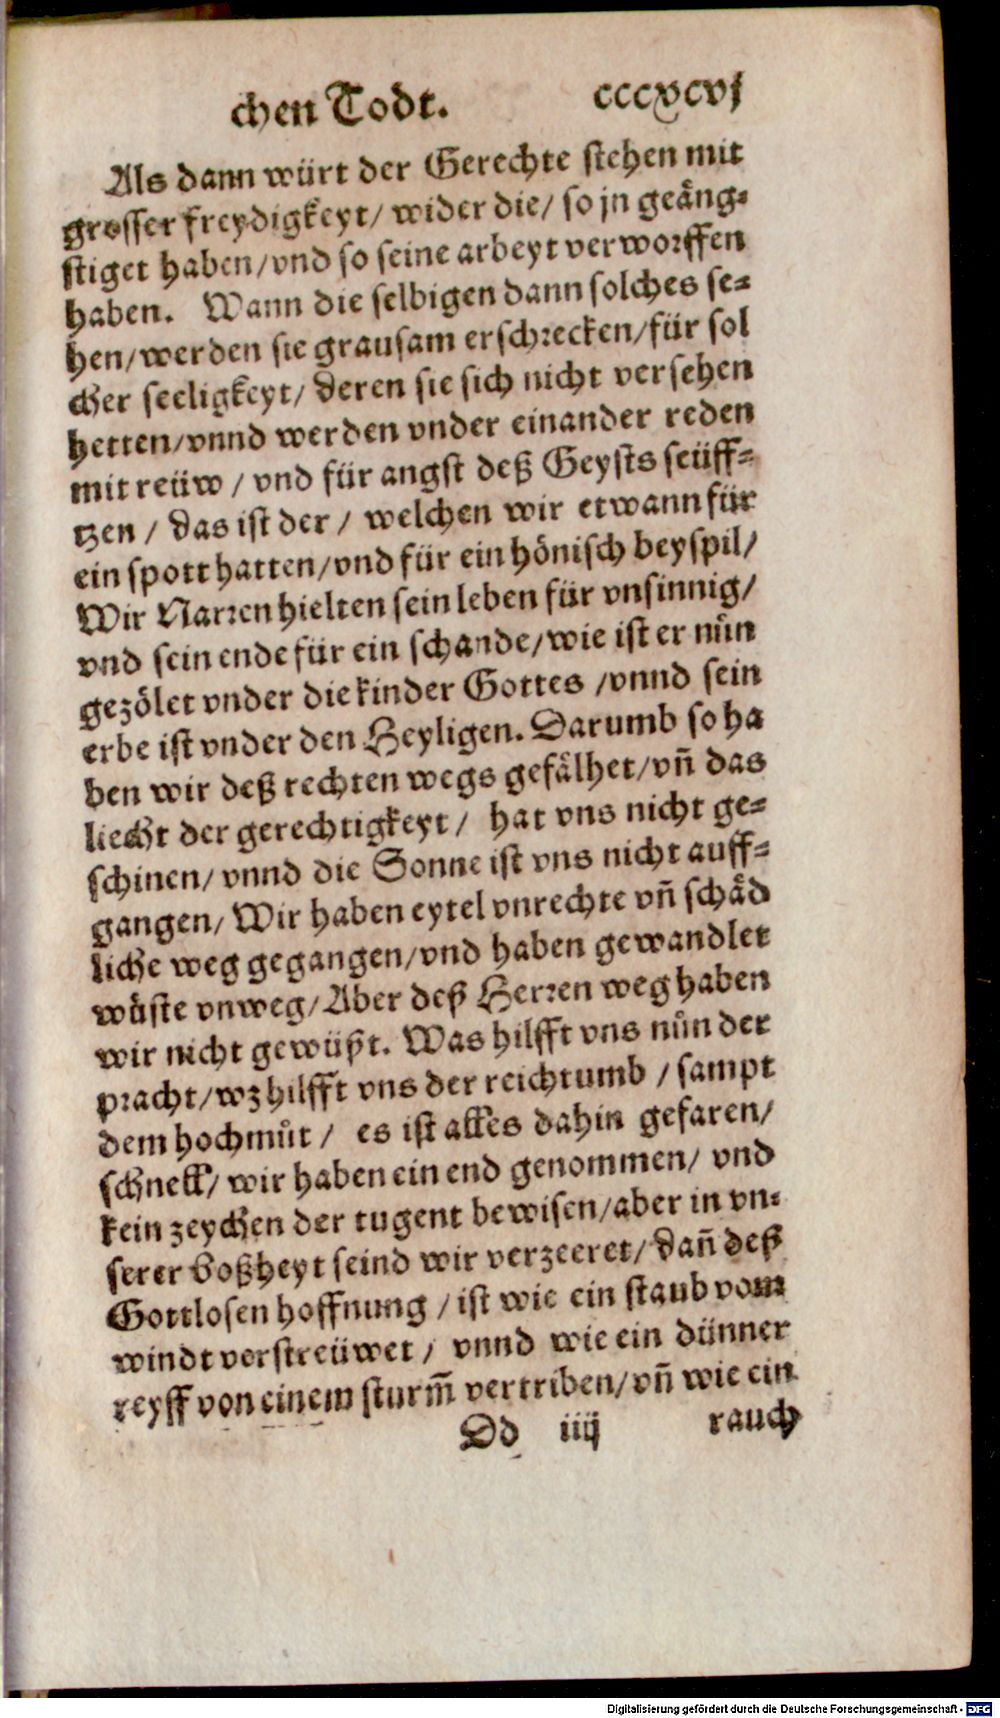 chen Todt. cccxcvj
Als dann würt der Gerechte stehen mit
grosser freydigkeyt/ wider die/ so jn geäng⸗
stiget haben/vnd so seine arbeyt verworffen
haben. Wann die selbigen dann solches se⸗
hen/werden sie grausam erschrecken/für sol
cher seeligkeyt/ deren sie sich nicht versehen
hetten/vnnd werden vnder einander reden
mit reüw / vnd für angst deß Geysts seüff⸗
tzen / das ist der / welchen wir etwann für
ein spott hatten/vnd für ein hönisch beyspil/
Wir Narren hielten sein leben für vnsinnig/
vnd sein ende für ein schande/wie ist er nůn
gezölet vnder die kinder Gottes /vnnd sein
erbe ist vnder den Heyligen. Darumb so ha
ben wir deß rechten wegs gefälhet/vñ das
liecht der gerechtigkeyt / hat vns nicht ge⸗
schinen/ vnnd die Sonne ist vns nicht auff⸗
gangen/ Wir haben eytel vnrechte vñ schäd
liche weg gegangen/vnd haben gewandlet
wüste vnweg/Aber deß Herren weg haben
wir nicht gewüßt. Was hilfft vns nůn der
pracht/wz hilfft vns der reichtumb / sampt
dem hochmůt / es ist alles dahin gefaren/
schnell/ wir haben ein end genommen/ vnd
kein zeychen der tugent bewisen/aber in vn⸗
serer boßheyt seind wir verzeeret/ dañ deß
Gottlosen hoffnung / ist wie ein staub vom
windt verstreüwet / vnnd wie ein dünner
reyff von einem sturm̃ vertriben/vñ wie ein
Dd iiij rauch
Digitalisierung gefördert durch die Deutsche Forschungsgemeinschaft - DFG